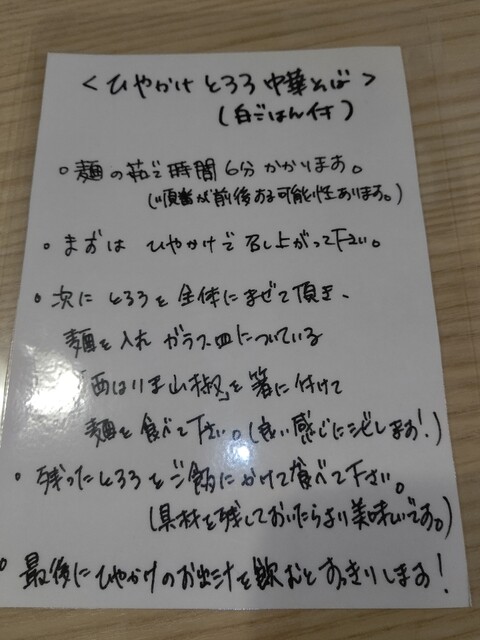 <ひやかけとろろ中華そば>
(白ごはん付)
◦麺の茹で時間6分かかります。
(順番が前後する可能性あります。)
◦まずは ひやかけで召し上がって下さい。
◦次に とろろを全体にまぜて頂き、
麺を入れ ガラス皿についている
「西はりま山椒」を箸に付けて
麺を食べて下さい。(良い感じにシビレます!)
◦残ったとろろをご飯にかけて食べて下さい。
(具材を残しておいたらより美味いです。)
◦最後にひやかけのお出汁を飲むとすっきりします!